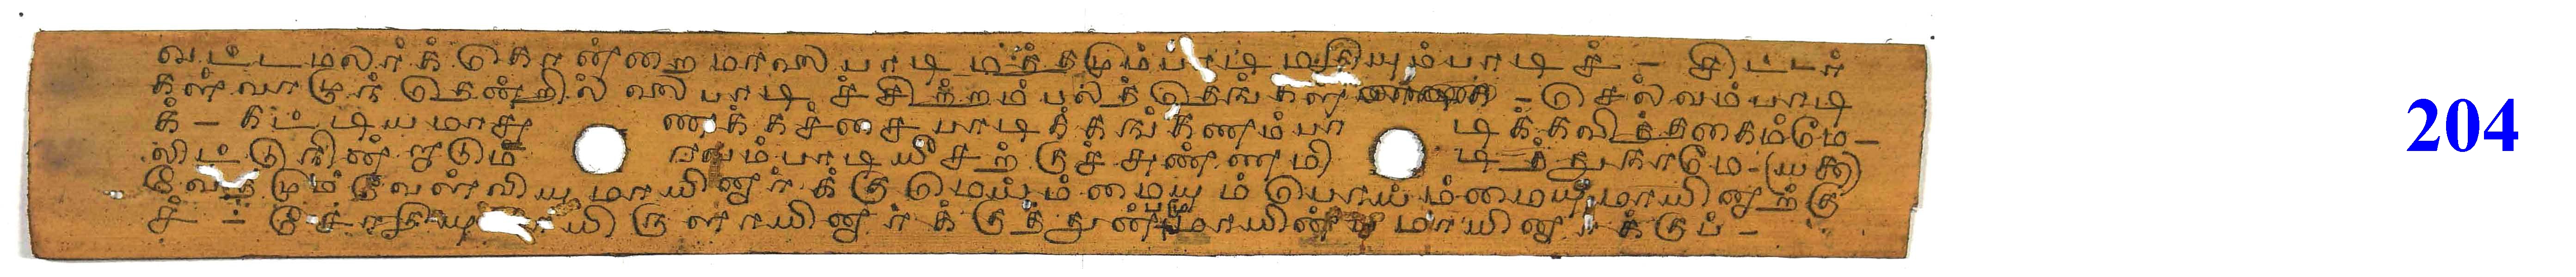 வட்டமலர்க்கொன்றைமாலைபாடி மத்தமும்பாடி மதியும்பாடிச் - சிட்டர்
கள்வாழுந் தென்றில்லைபாடிச்சிற்றம்பலத்தெங்கள் - செல்வம்பாடி
க் - கட்டியமாசு ணக்கச்சைபாடிக்கங்கணம்பா டிக்கவித்தகைம்மே -
லிட்டுநின்றாடும் ரவம்பாடியீசற்குச்சுண்ணமி டித்துநாமே - (யக)
வேதமும்வேள்வியுமாயினார்க்குமெய்ம்மையும்பொய்ம்மையுமாயினார்க்கு
ச் - சோதியு யிருளாயினார்க்குத்துன்பமாயின்பமாயினார்க்குப் -
204